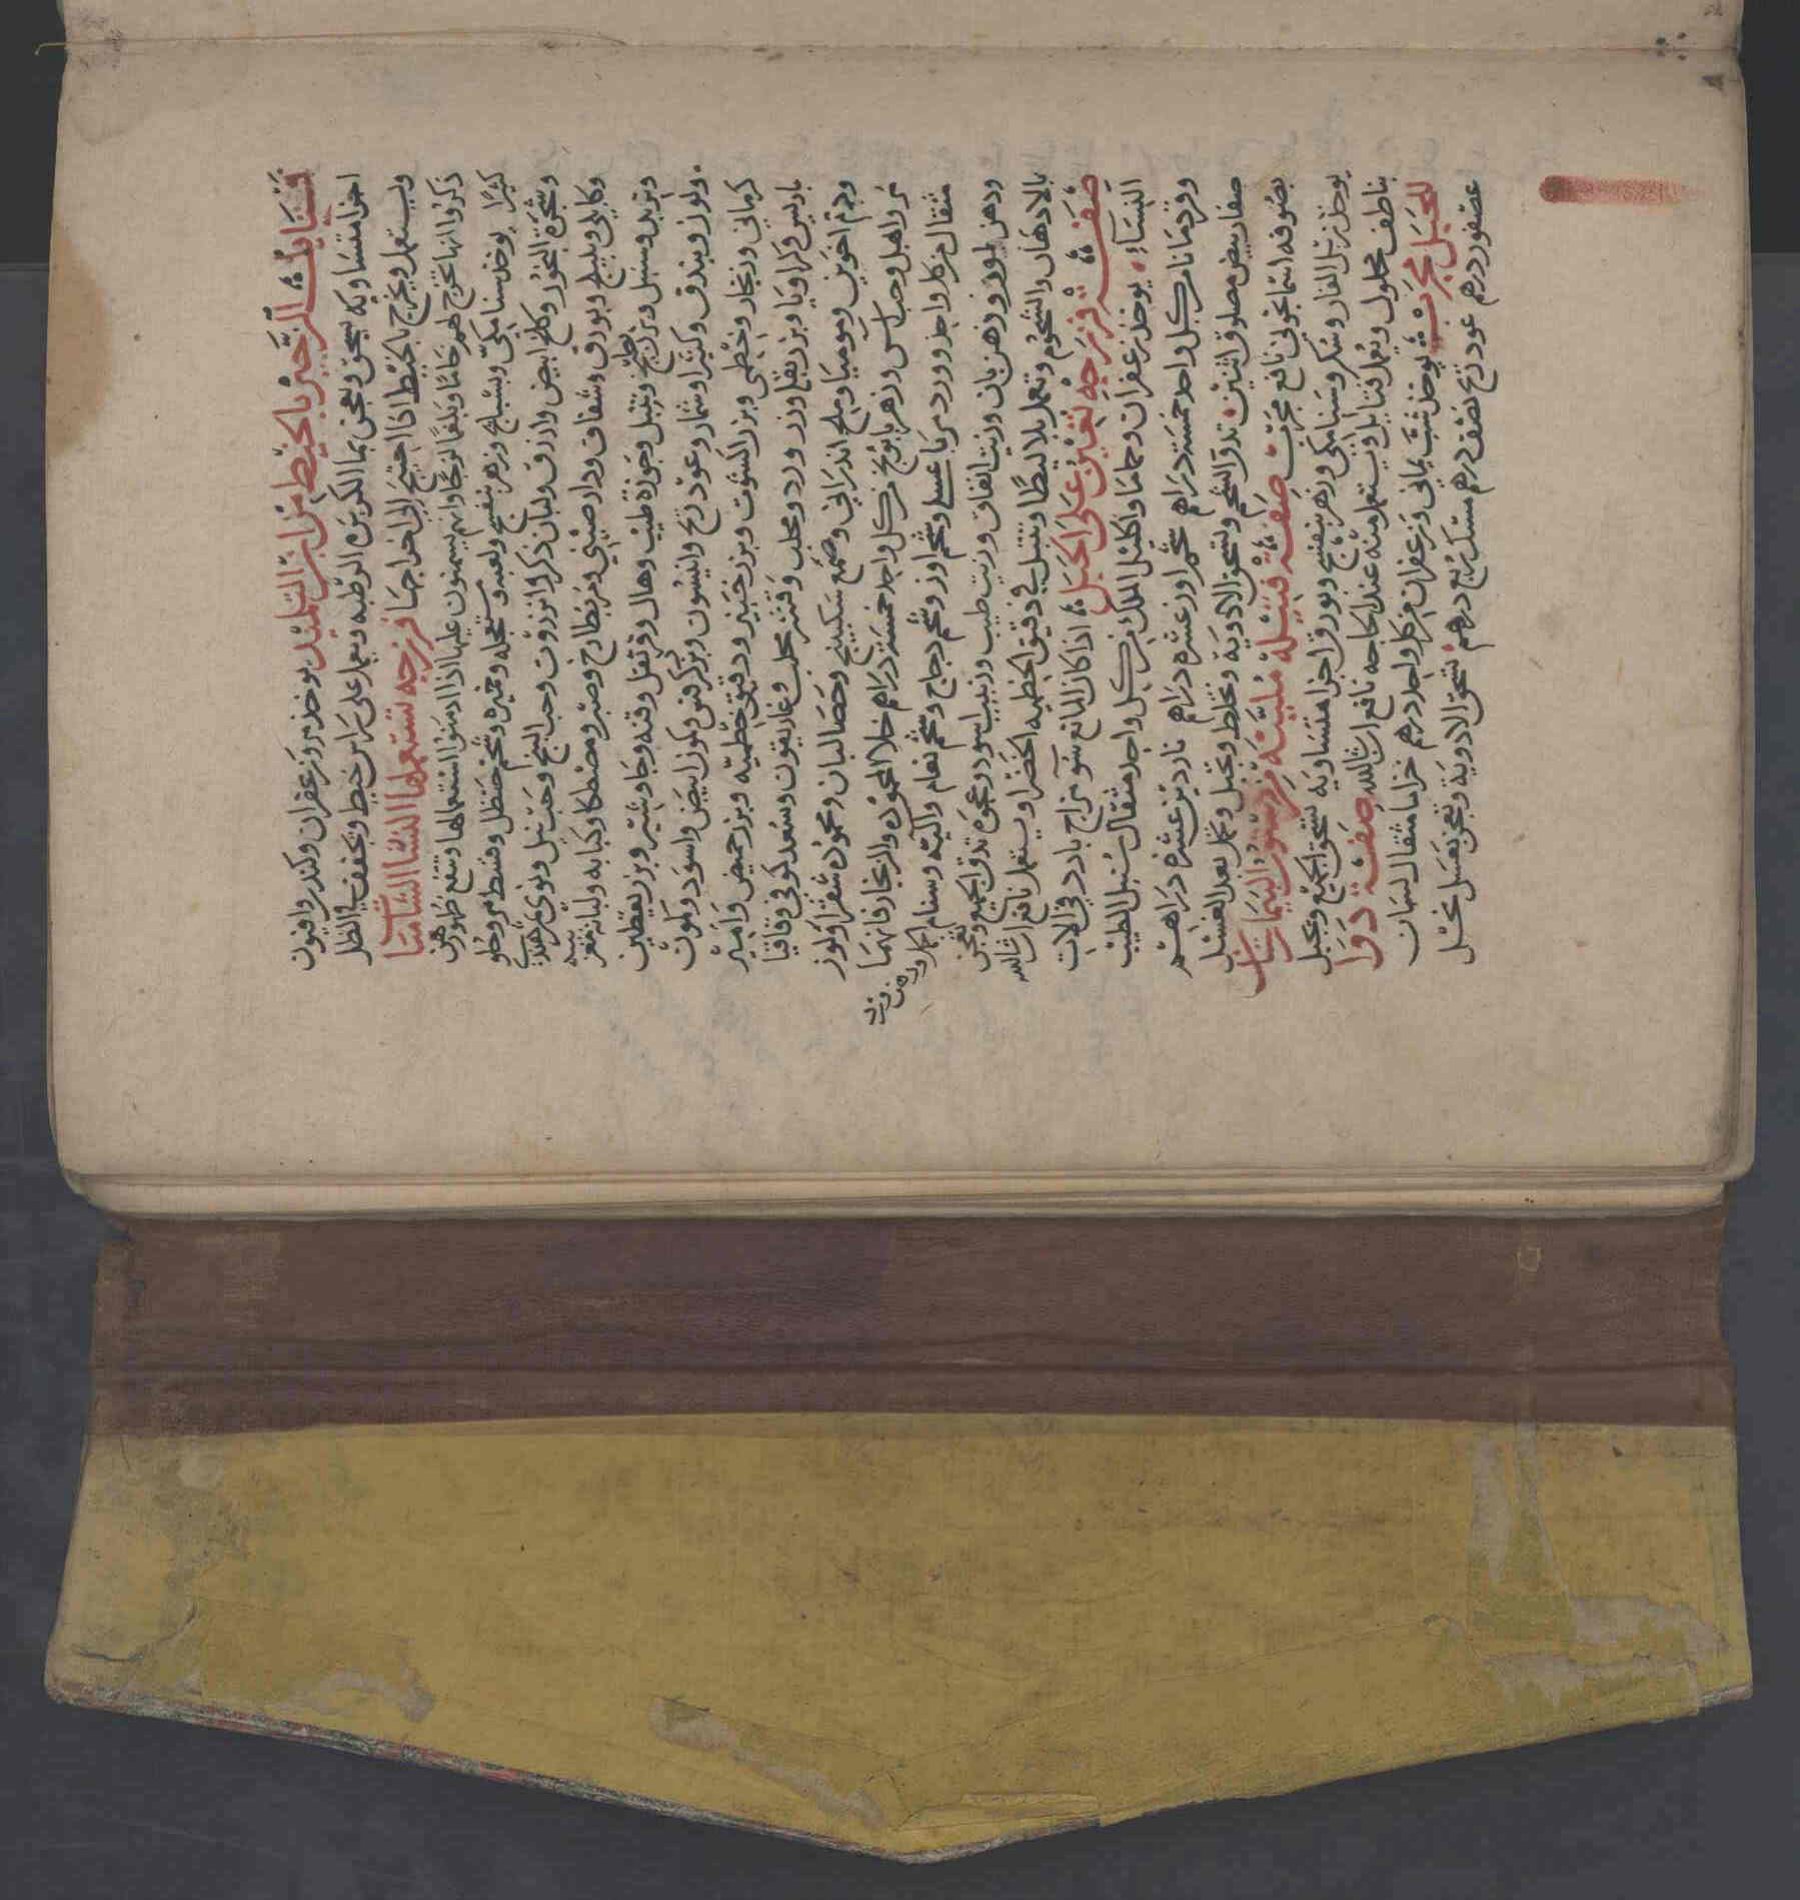 فتايل الزحير بالخيط من ابن التلميذ يوخذ مر وزعفران وكندر وافيون
اجزا متساويه يسحق ويعجن بما الكزبره الرطبه ويعمل على راس خيط ويجفف في الظل
ويستعمل ويخرج بالخيط اذا احتيج الى اخراجها فرزجه تستعملها النسا الشاميات
ذكروا انها تخرج لهم خاما وبلغما لزجا وانهم يسمنون عليها اذا ادمنوا استعمالها وتنفع ظهورهن
كثيرا يوخذ سنا مكي وبسبايج وزهر بنفسج ولعبه ومستعجله وخميره وشحم حنظل وقسط مر وحلو
وشجرة البخور وكلخ ابيض وازرق ولبان ذكر وانزروت وحب البنج وحب نيل ونوى تمر هندي
وكابلي وبليلج وبورق وشقاق ودار صيني ومر بطارخ وصبر ومصطكا وكبابه ولبانه مغربيه
وتربد وسنبل وبزر بنج وزنجبيل وجوزة طيب وهال وقرنفل وقنه وجاوشير وبزر يقطين
ولوز وبندق وكثيرا وشمار وعود رح وانيسون وبزر كرفس وكمون ابيض واسود وكمون
كرماني وزنجار وخطمي وبزر كشوت وبزر خبيز ودقيق خطميه وبزر حميض واميرباريس
وكراويا وبزر بقل وزر ورد ومحلب وقشر محلب وغاريقون وسعد كوفي وقاقيا
ودم اخوين وموميا وملح اندراني وصمغ سكبينج وحصالبان ومحموده شقرا ولوز
مر واهل وحب اس وزهر بابونج من كل واحد خمسة دراهم خلا المحموده والزنجار فانهما
مثقال من كل واحد وورد مربا عسلي وشحم اوز وشحم دجاج وشحم نعام والية وسنام
ودهن لوز ودهن بان وزيت انفاق وزيت طيب وزبيب اسود وعجوه تدق الجميع وتعجن
بالادهان والشحوم وتعمل بلاليطا وتتبل في دقيق الخطميه الخضرا ويستعمل نافع ان شا الله
صفة فرزجه تعين على الحبل اذا كان المانع سو مزاج بارد في الات
النساء يوخذ زعفران وحماما واكليل الملك من كل واحد مثقال سنبل الطيب
وقردمانا من كل واحد خمسة دراهم شحم اوز عشره دراهم ناردين عشرة دراهم
صفار بيض مصلوق اثنين تدق الشحم وتسحق الادوية وتخلط وتجبل وتحمل بعد الغسل
بصوفه اسمانجوني نافع مجرب صفة فتيله ملينه من دستور البيمارستان
يوخذ زبل الفار وسكر وسنا مكي وزهر بنفسج وبورق اجزا متساويه تسحق الجميع وتجبل
بناطف محلول ويعمل فتايل ويستعمل منه عند الحاجه نافع ان شا الله صفة دوا
للحبل مجرب يوخذ شب يماني وزعفران من كل واحد درهم خزاما مثقال لسان
عصفور درهم عود رح نصف درهم مسك ربع درهم تسحق الادوية وتعجن بعسل نحل